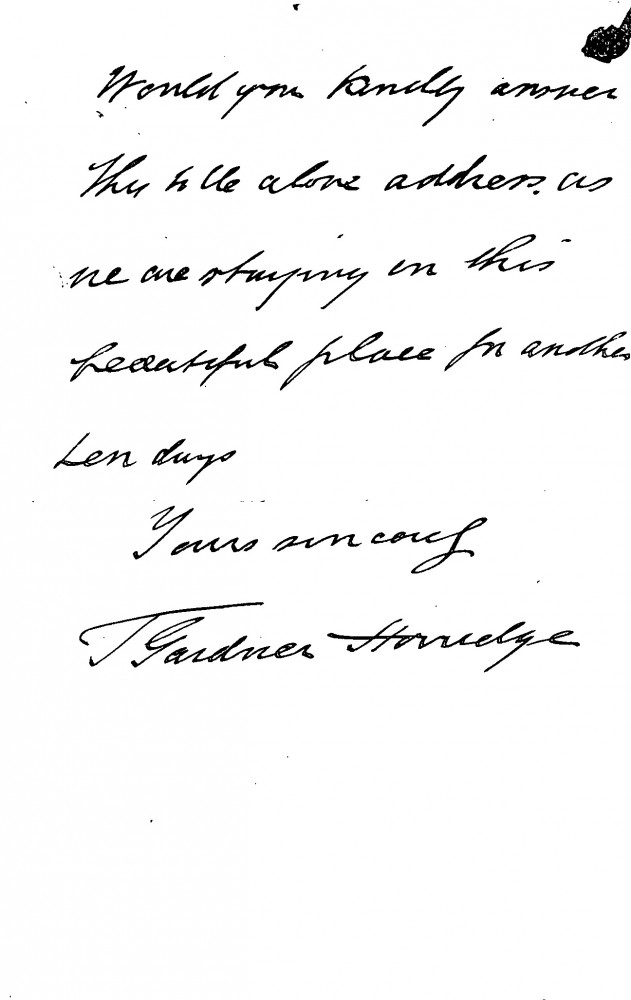 Would you kindly answer
this to the above address. as
we are staying in this
beautiful place for another
ten days
Yours sincerely
T Gardner Horridge